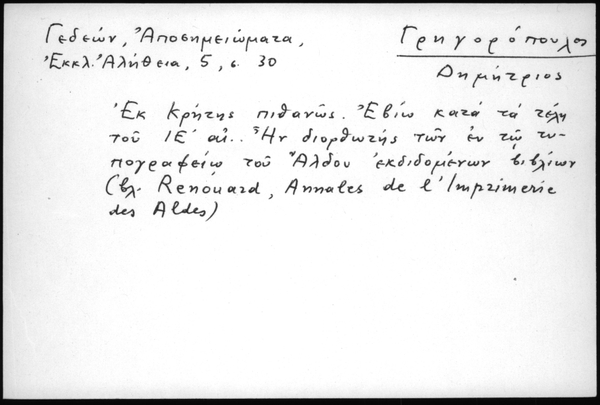 Γεδεών, Ἀποσημειώματα,
Ἐκκλ. Ἀλήθεια, 5, σ. 30
Γρηγορόπουλος
Δημήτριος
Ἐκ Κρήτης πιθανῶς. Ἐβίω κατά τά τέλη
τοῦ ΙΕ΄ αἰ.. Ἦν διορθωτής τῶν ἐν τῷ τυ-
πογραφείῳ τοῦ Ἄλδου ἐκδιδομένων βιβλίων
(βλ. Renouard, Annales de l'Imprimerie
des Aldes)